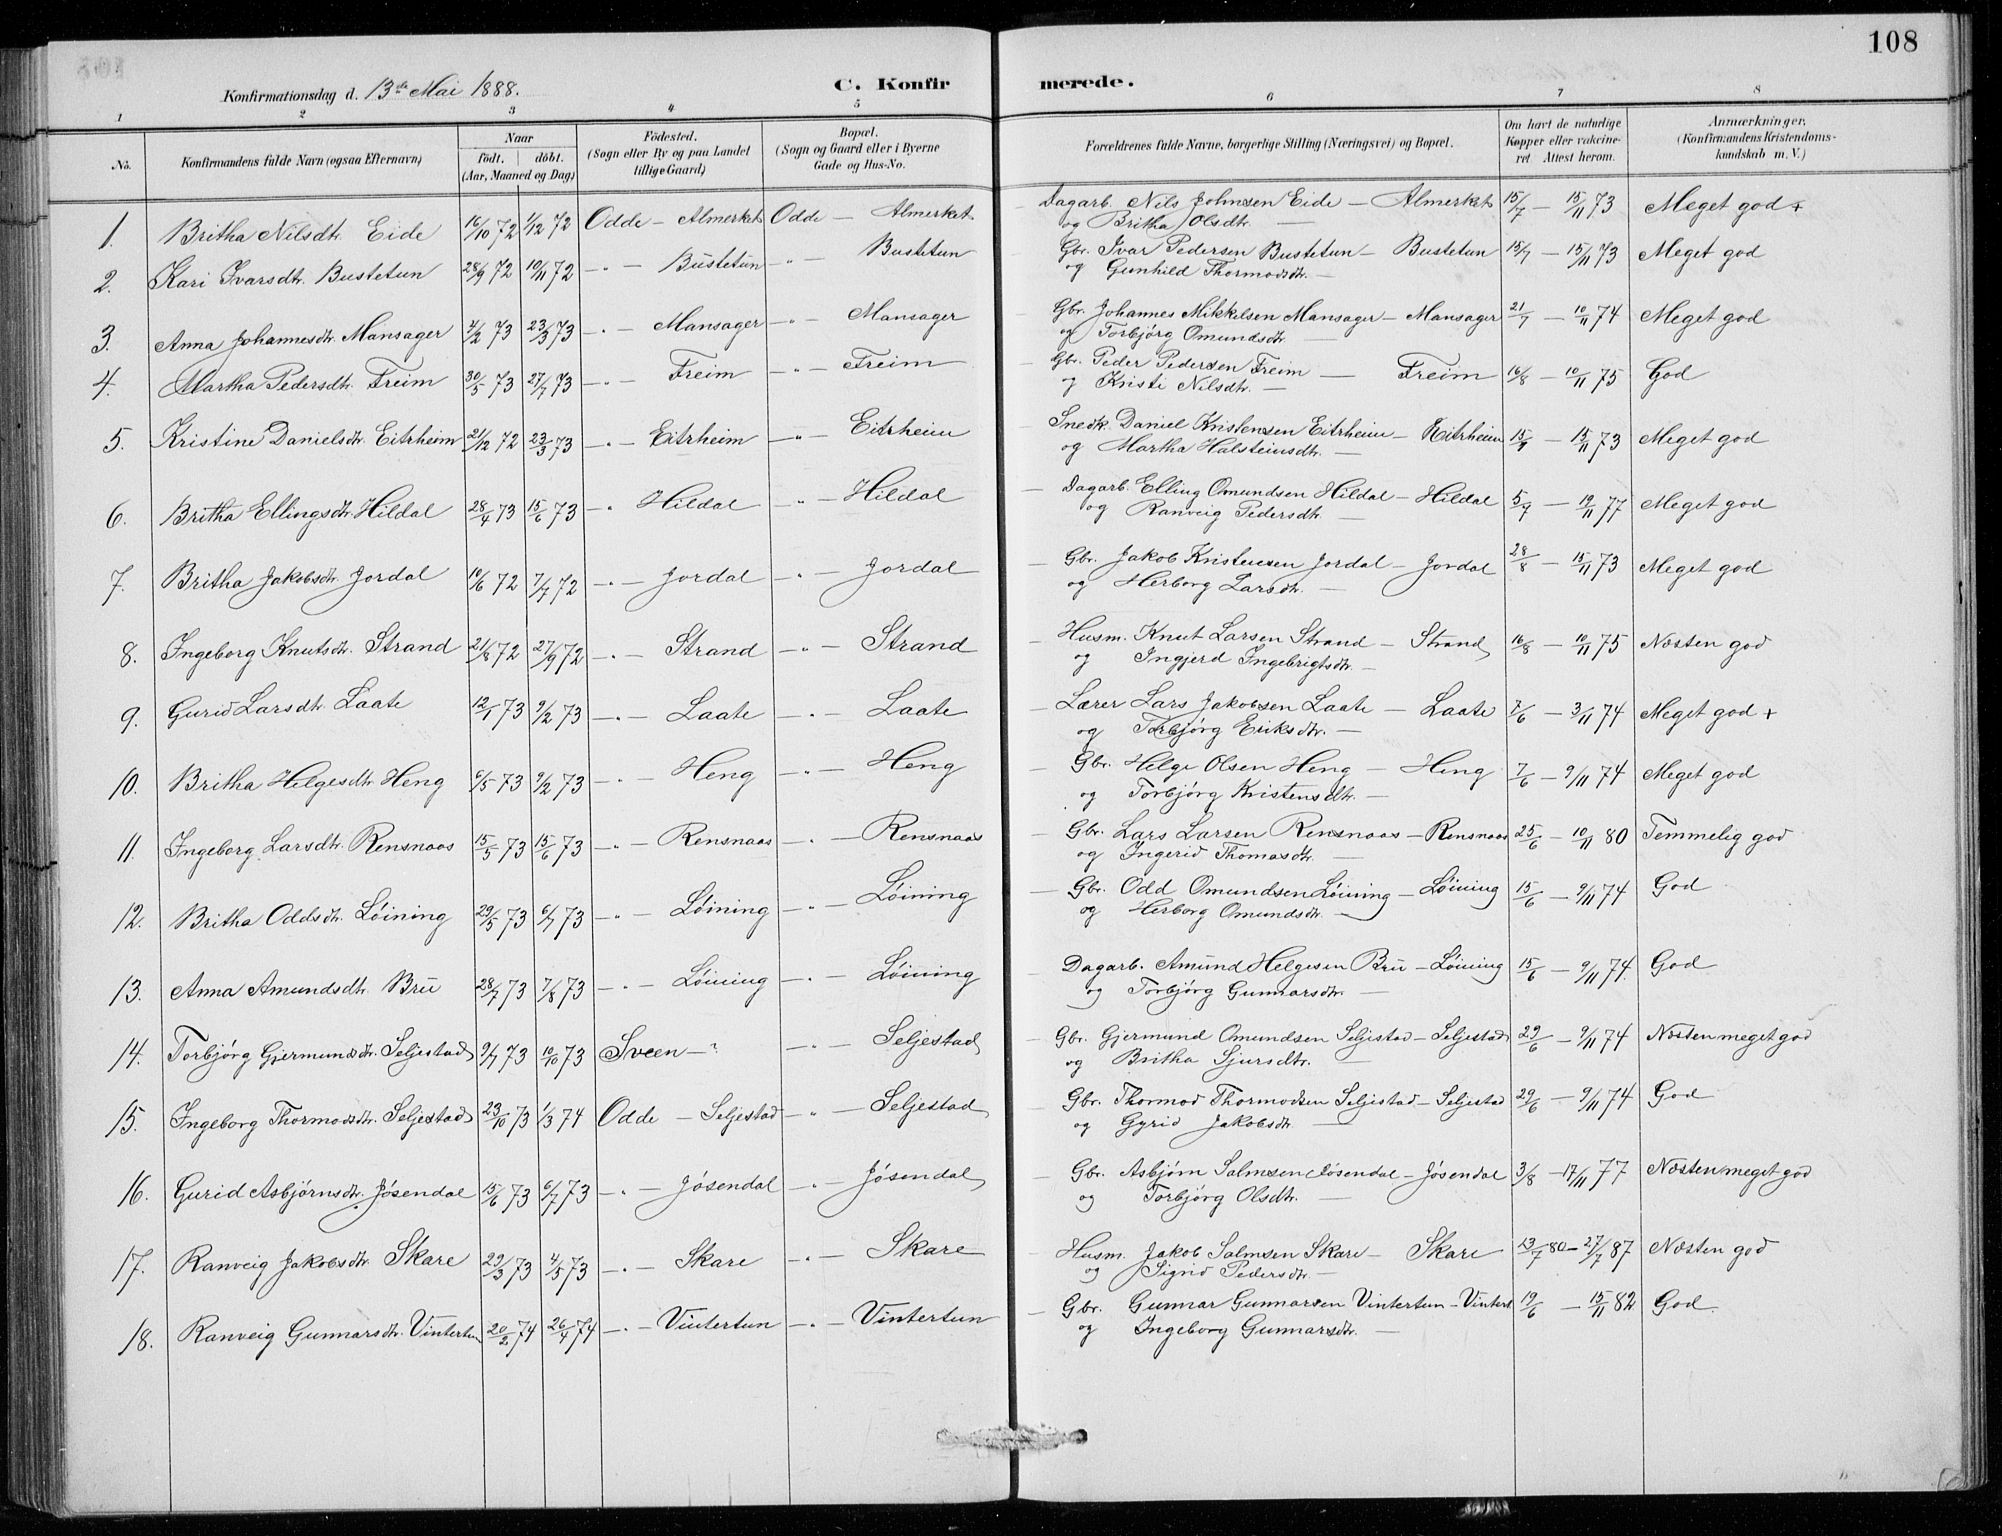 108
Konfirmationsdag d. 13de Mai 1888. C. Konfirmerede.
1 2 3 4 5 6 7 8
No. Konfirmandens fulde Navn (ogsaa Efternavn) Naar födt. döbt. (Aar, Maaned og Dag) Födested. (Sogn eller By og paa Landet tillige Gaard) Bopæl. (Sogn og Gaard eller i Byerne Gade og Hus-No. Forældrenes fulde Navne, borgerlige Stilling (Næringsvei) og Bopæl. Om havt de naturlige Kopper eller vakcineret. Attest herom. Anmærkninger. (Konfirmandens Kristendomskundskab m. V.)
1. Britha Nilsdtr. Eide 16/10 72 1/12 72 Odde - Almerket Odde - Almerket Dagarb. Nils Johnsen Eide - Almerket 15/7 - 15/11 73 Meget god +
og Britha Olsdtr. -
2. Kari Ivarsdtr. Bustetun 28/9 72 10/11 72 -"- Bustetun -"- Bustetun Gbr. Ivar Pedersen Bustetun - Bustetun 15/7 - 15/11 73 Meget god
og Gunhild Thormodsdtr. -
3. Anna Johannesdtr. Mansager 4/2 73 23/3 73 -"- Mansager -"- Mansager Gbr. Johannes Mikkelsen Mansager - Mansager 21/7 - 10/11 74 Meget god
og Torbjörg Omundsdtr. -
4. Martha Pedersdtr. Freim 30/5 73 27/7 73 -"- Freim -"- Freim Gbr. Peder Pedersen Freim - Freim 16/8 - 10/11 75 God
og Kristi Nilsdtr. -
5. Kristine Danielsdtr. Eitrheim 21/12 72 23/3 73 -"- Eitrheim -"- Eitrheim Snedk. Daniel Kristensen Eitrheim - Eitrheim 15/7 - 15/11 73 Meget god
og Martha Halsteinsdtr. -
6. Britha Ellingsdtr. Hildal 28/4 73 15/6 73 -"- Hildal -"- Hildal Dagarb. Elling Omundsen Hildal - Hildal 5/9 - 19/11 77 Meget god
og Ranveig Pedersdtr. -
7. Britha Jakobsdtr. Jordal 10/6 72 7/7 72 -"- Jordal -"- Jordal Gbr. Jakob Kristensen Jordal - Jordal 28/8 - 15/11 73 Meget god
og Herborg Larsdtr. -
8. Ingeborg Knutsdtr. Strand 21/8 72 27/9 72 -"- Strand -"- Strand Husm. Knut Larsen Strand - Strand 16/8 - 10/11 75 Næsten god
og Ingjerd Ingebrigtsdtr. -
9. Gurid Larsdtr. Laate 12/1 73 9/2 73 -"- Laate -"- Laate Lærer Lars Jakobsen Laate - Laate 7/6 - 3/11 74 Meget god +
og Torbjörg Eriksdtr. -
10. Britha Helgesdtr. Heng 6/5 73 9/2 73 -"- Heng -"- Heng Gbr. Helge Olsen Heng - Heng 7/6 - 9/11 74 Meget god
og Torbjörg Kristensdtr. -
11. Ingeborg Larsdtr. Rensnaos 15/5 73 15/6 73 -"- Rensnaas -"- Rensnaas Gbr. Lars Larsen Rensnaas - Rensnaas 25/6 - 10/11 80 Temmelig god
og Ingerid Thomasdtr. -
12. Britha Oddsdtr. Löining 29/5 73 6/7 73 -"- Löining -"- Löining Gbr. Odd Omundsen Löining - Löining 15/6 - 9/11 74 God
og Herborg Omundsdtr. -
13. Anna Amundsdtr. Bru 28/7 73 7/8 73 -"- Löining -"- Löining Dagarb. Amund Helgesen Bru - Löining 15/6 - 9/11 74 God
og Torbjörg Gunnarsdtr. -
14. Torbjörg Gjermundsdtr. Seljestad 9/7 73 10/10 73 Sveen - ? -"- Seljestad Gbr. Gjermund Omundsen Seljestad - Seljestad 29/6 - 9/11 74 Næsten meget god
og Britha Sjursdtr. -
15. Ingeborg Thormodsdtr. Seljestad 23/10 73 1/3 74 Odde - Seljestad -"- Seljestad Gbr. Thormod Thormodsen Seljestad - Seljestad 29/6 - 9/11 74 God
og Gyrid Jakobsdtr. -
16. Gurid Asbjörnsdtr. Jösendal 15/6 73 6/7 73 -"- Jösendal -"- Jösendal Gbr. Asbjörn Salmsen Jösendal - Jösendal 3/8 - 17/11 77 Næsten meget god
og Torbjörg Olsdtr. -
17. Ranveig Jakobsdtr. Skare 29/3 73 4/5 73 -"- Skare -"- Skare Husm. Jakob Salmsen Skare - Skare 13/7 80 - 27/7 87 Næsten god
og Sigrid Pedersdtr. -
18. Ranveig Gunnarsdtr. Vintertun 20/2 74 26/4 74 -"- Vintertun -"- Vintertun Gbr. Gunnar Gunnarsen Vintertun - Vintert 19/6 - 15/11 82 God.
og Ingeborg Gunnarsdtr. -